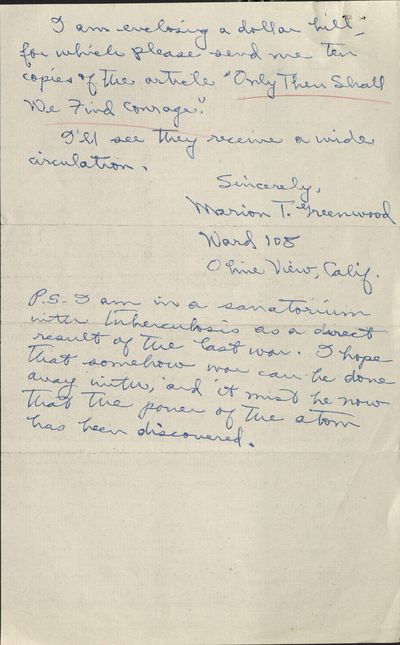 I am enclosing a dollar bill
for which please send me ten
copies of the article "Only Then Shall
We Find Courage".
I'll see they receive a wide
circulation.
Sincerely,
Marion T. Greenwood
Ward 108
Olive View, Calif.
P.S. I am in a sanatorium
with tuberculosis as a direct
result of the last war. I hope
that somehow war can be done
away with, and it must be now
that the power of the atom
has been discovered.